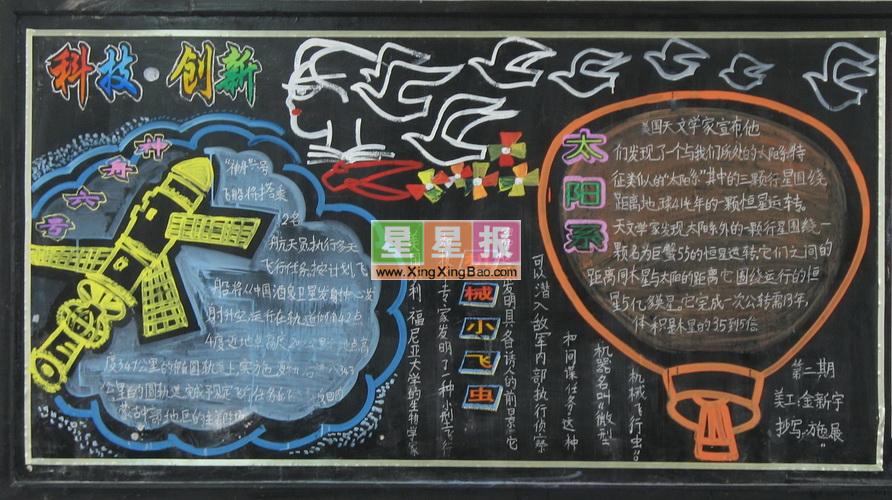 科技·创新
神舟六号
"神舟"六号
飞船将搭乘
2名
航天员执行多天
飞行任务.按计划,飞
船将从中国酒泉卫星发射中心发
射升空,运行在轨道倾角42点
4度近地点高
度347公里的椭圆轨道上实施
公里的圆轨道
蒙古中部地区的主着陆场
星星报
www.XingXingBao.com
械小飞虫
利福尼亚大学的生物学家
专家发明了一种小型飞行
发明具备诱人的前景,它
可以潜入敌军内部执行侦察
和间谍任务,这种
机器名叫"微型
机械飞行虫"。
太阳系
美国天文学家宣布他
们发现了一个与我们所处的太阳系特
征类似的"太阳系"其中的三颗行星围绕
距离地球41光年的一颗恒星运转。
天文学家发现太阳系外的一颗行星围绕一
颗名为巨蟹55的恒星运转,它们之间的
距离同木星与太阳的距离它围绕运行的恒
星5亿
它完成一次公转需13年,
体积是木星的35到5倍
第二期
美工:金新宇
抄写:施展